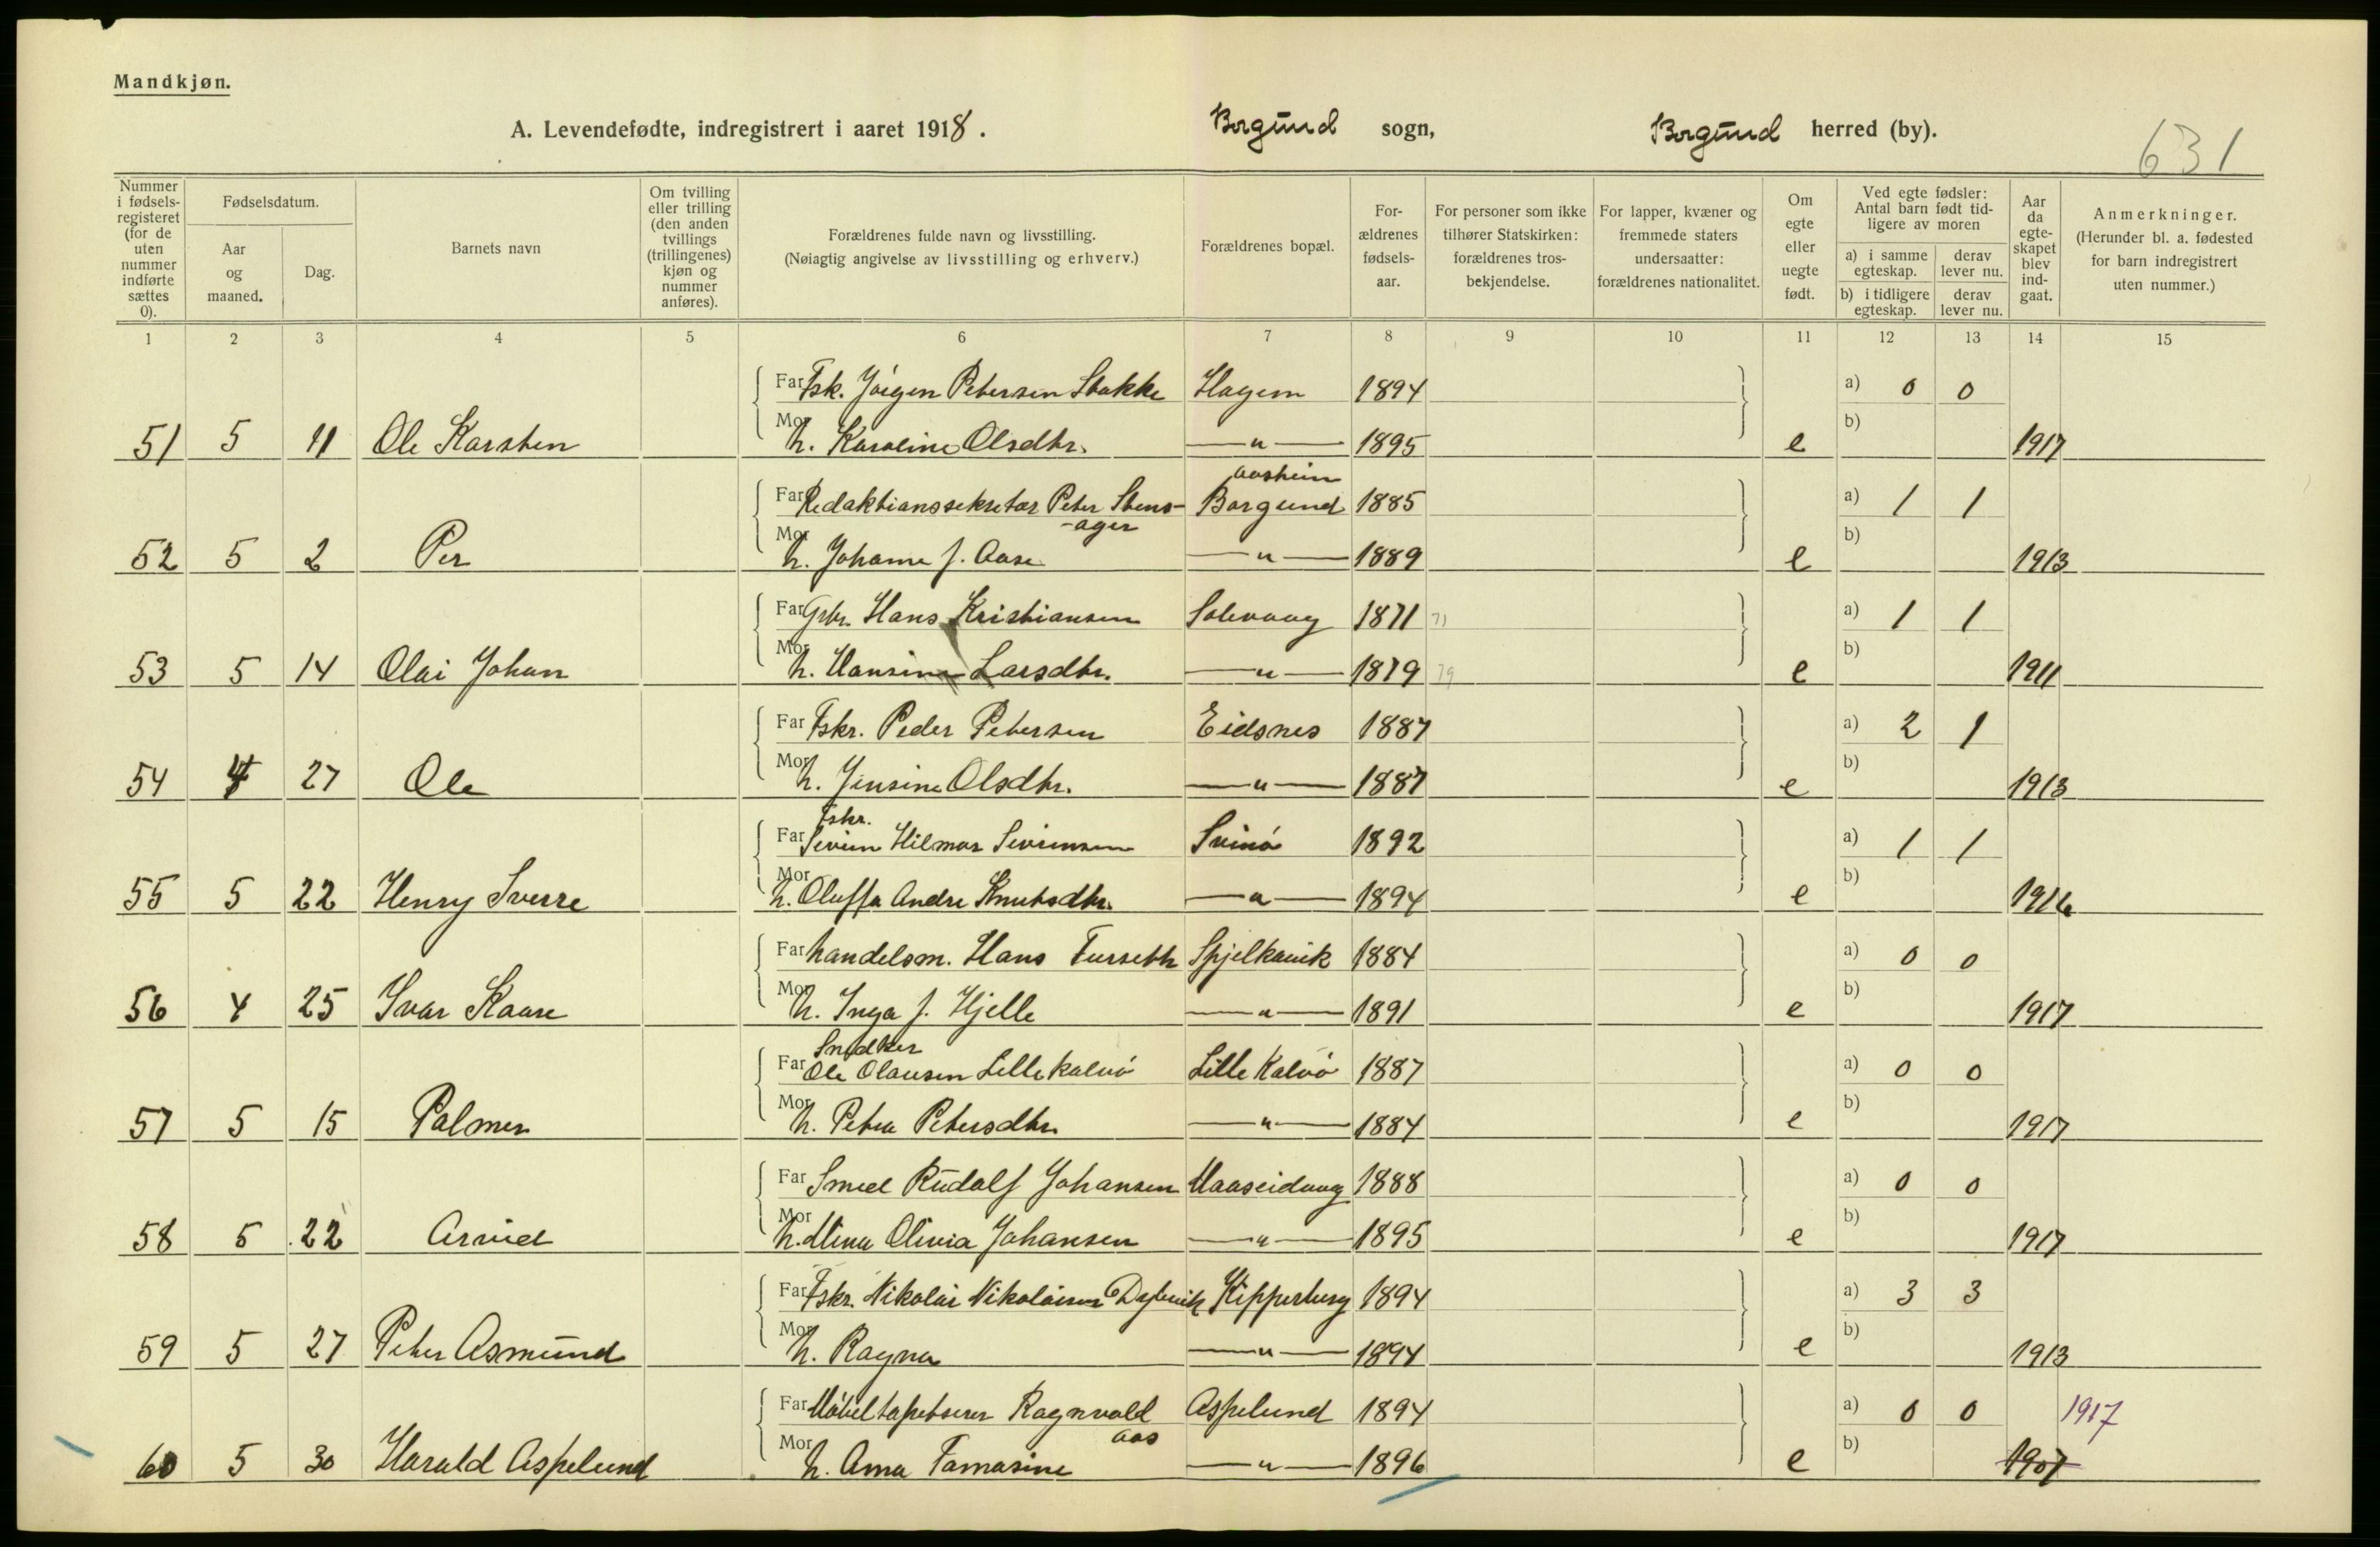 Mandkjøn.
A. Levendefødte, indregistrert i aaret 1918. Borgund sogn, Borgund herred (by).
631
Nummer i fødsels-registeret (for de uten nummer indførte sættes 0).
Fødselsdatum.
Aar og maaned.
Dag.
Barnets navn
Om tvilling eller trilling (den anden tvillings (trillingenes) kjøn og nummer anføres).
Forældrenes fulde navn og livsstilling.
(Nøiagtig angivelse av livsstilling og erhverv.)
Forældrenes bopæl.
For-ældrenes fødsels-aar.
For personer som ikke tilhører Statskirken: forældrenes tros-bekjendelse.
For lapper, kvæner og fremmede staters undersaatter: forældrenes nationalitet.
Om egte eller uegte født.
Ved egte fødsler: Antal barn født tid-ligere av moren
a) i samme egteskap.
derav lever nu.
b) i tidligere egteskap.
derav lever nu.
Aar da egte-skapet blev ind-gaat.
Anmerkninger.
(Herunder bl. a. fødested for barn indregistrert uten nummer.)
1 2 3 4 5 6 7 8 9 10 11 12 13 14 15
Far Fsk. Jørgen Petersen Stokke Hagem 1894 a) 0 0
51 5 11 Ole Karsten Mor h. Karoline Olsdtr. —"— 1895 e b) 1917
Aasheim
Far Redaktionssekretær Peter Stens- Borgund 1885 a) 1 1
-ager
52 5 2 Per Mor h. Johanne f. Aase —"— 1889 e b) 1913
Far Gbr. Hans Kristiansen Solevaag 1871 71 a) 1 1
53 5 14 Olai Johan Mor h. Hansine Larsdtr. —"— 1879 79 e b) 1911
Far Fskr. Peder Petersen Eidsnes 1887 a) 2 1
54 4 27 Ole Mor h. Jensine Olsdtr. —"— 1887 e b) 1913
Fskr.
Far Sivrin Hilmar Sivrinsen Svinø 1892 a) 1 1
55 5 22 Henry Sverre Mor h. Oluffa Andre Knutsdtr. —"— 1894 e b) 1916
Far handelsm. Hans Fursetth Spjelkavik 1884 a) 0 0
56 4 25 Ivar Kaare Mor h. Inga f. Hjelle —"— 1891 e b) 1917
Snedker
Far Ole Olausen Lillekalvø Lille Kalvø 1887 a) 0 0
57 5 15 Palmer Mor h. Petra Petersdtr. —"— 1884 e b) 1917
Far Smed Rudolf Johansen Maaseidvaag 1888 a) 0 0
58 5 22 Arvid Mor h. Mina Olivia Johansen —"— 1895 e b) 1917
Far Fskr. Nikolai Nikolaisen Dybvik Kipperberg 1894 a) 3 3
59 5 27 Peter Asmund Mor h. Ragna —"— 1894 e b) 1913
Far Møbeltapetserer Ragnvald Aspelund 1894 a) 0 0 1917
Aas
60 5 30 Harald Aspelund Mor h. Anna Tomasine —"— 1896 e b) 1907